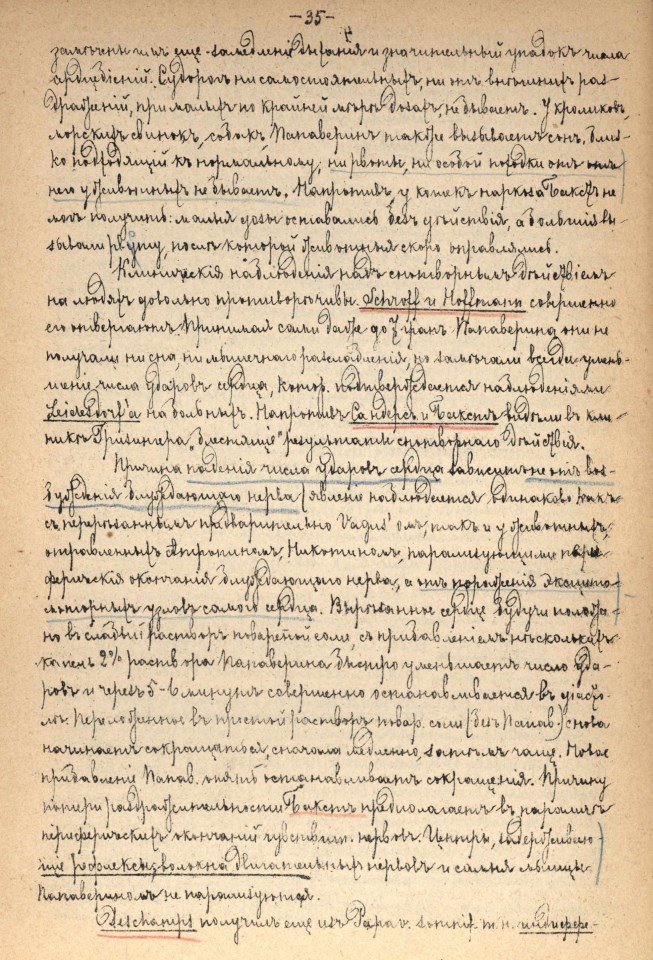 -35-
замѣчены имъ еще замедленіе дыханія и значительный упадокъ числа
сердцебіеній. Судорогъ ни самостоятельныхъ, ни отъ внѣшнихъ раз-
драженій, при малыхъ по крайней мѣрѣ дозахъ, не бываетъ. У кроликовъ,
морскихъ свинокъ, собакъ, Папаверинъ также вызываетъ сонъ, близ-
ко подходящій къ нормальному; ни рвоты, ни особой походки отъ
него у животныхъ не бываетъ. Напротивъ, у кошекъ наркоза Бакстъ не
могъ получить: малыя дозы оставались безъ дѣйствія, а большія вы-
зывали рвоту, послѣ которой животныя скоро оправлялись.
Клиническія наблюденія надъ снотворнымъ дѣйствіемъ
на людяхъ довольно противорѣчивы. Schroff и Hoffmann совершенно
его отвергаютъ. Принимая сами даже до 7 гранъ Папаверина, они не
получали ни сна, ни мышечнаго разслабленія, но замѣчали всегда умень-
шеніе числа ударовъ сердца, котор. подтверждается наблюденіями
Leidesdorf'а на больныхъ. Напротивъ Сандерсъ и Бакстъ видѣли въ кли-
никѣ Гризингера „блестящіе" результаты снотворнаго дѣйствія.
Причина паденія числа ударовъ сердца зависитъ не отъ воз-
бужденія блуждающаго нерва (явленіе наблюдается одинаково какъ
съ перерѣзаннымъ предварительно Vagus'омъ, такъ и у животныхъ,
отравленныхъ Атропиномъ, Никотиномъ, парализующими пери-
ферическія окончанія блуждающаго нерва, а отъ пораженія эксцито-
моторныхъ узловъ самого сердца. Вырѣзанное сердце будучи положе-
но въ слабый растворъ поваренной соли, съ прибавленіемъ нѣсколькихъ
капель 2% раствора Папаверина быстро уменьшаетъ число уда-
ровъ и черезъ 5-6 минутъ совершенно останавливается въ діасто-
лѣ. Переложенное въ простой растворъ повар. соли (безъ Папав.) снова
начинаетъ сокращаться, сначала медленно, затѣмъ чаще. Новое
прибавленіе Папав. опять останавливаетъ сокращенія. Причину
потери раздражительности Бакстъ предполагаетъ въ параличѣ
периферическихъ окончаній чувствит. нервовъ. Центры, задерживаю-
щіе рефлексы, волокна двигательныхъ нервовъ и самыя мышцы
Папавериномъ не парализуются.
Deschamps получилъ еще изъ Papav. somnif. т. н. индиффе-